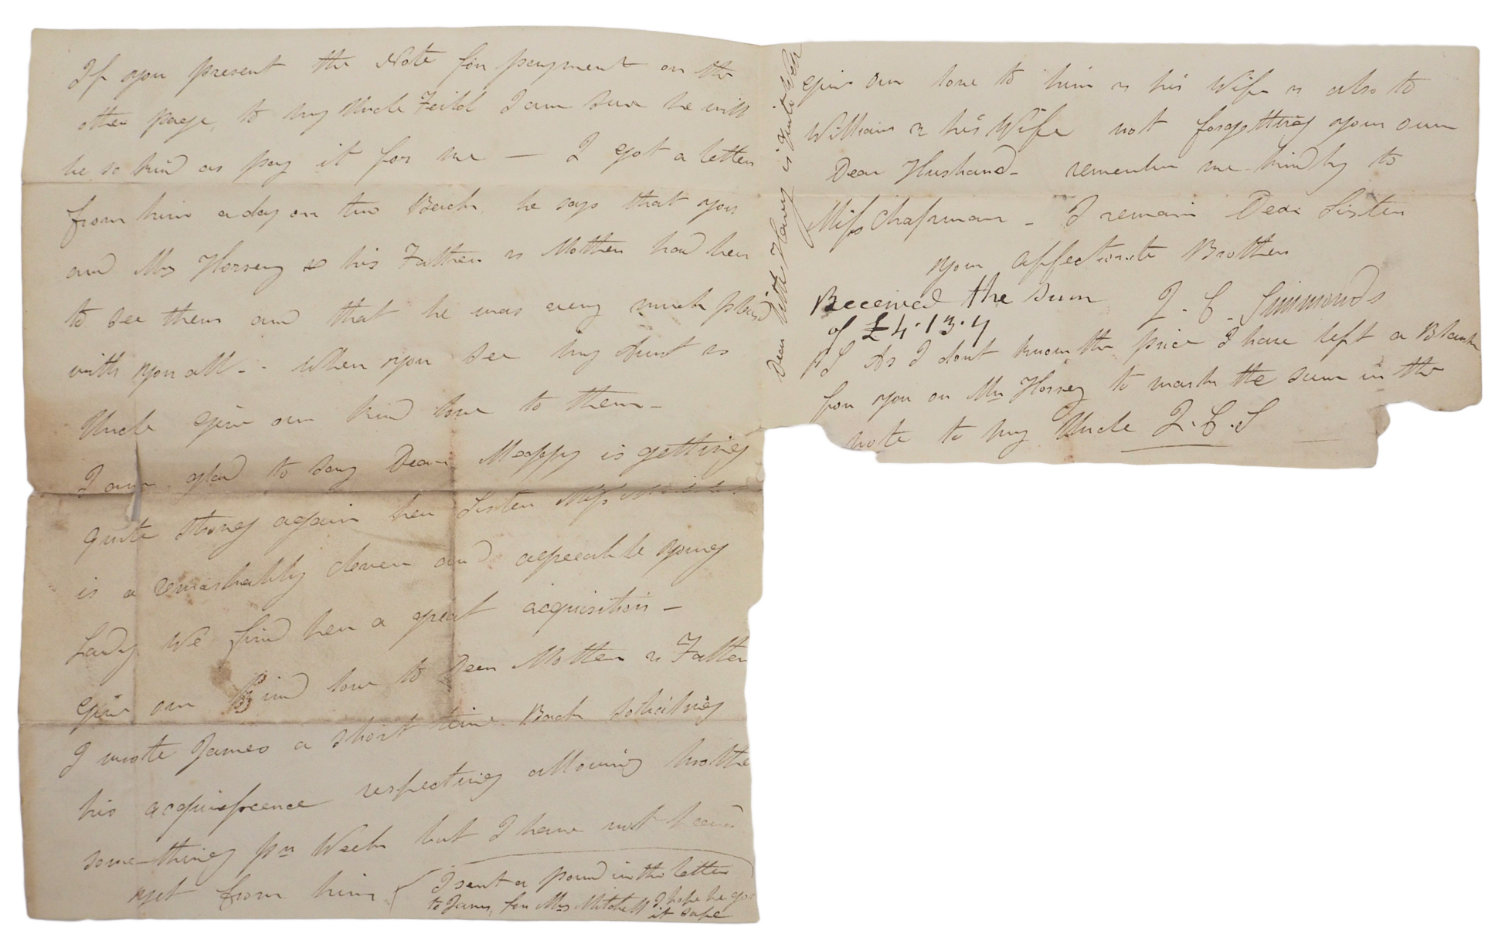 If you present the Note for payment on the
other page, to my Uncle Feild I am sure he will
be so kind as pay it for me — I got a letter
from him a day or two Back, he says that you
and Mrs Horsey & his Father & Mother had been
to see them and that he was very much pleas'd
with you all - . When you see my Aunt &
Uncle give our kind love to them —
I am glad to say Dear Mappy is getting
quite strong again her Sister Miss
is a remarkably clever and agreeable young
Lady We find her a great acquisition —
Give our Kind love to Dear Mother & Father
I wrote James a short time Back soliciting
his acquiescence respecting allowing
something pr Week but I have not heard
yet from him
I sent a pound in the letter
to James, for Mrs Mitchell I hope he got
it safe
Dear little Harry is quite well
give our love to him & his Wife & also to
William & his Wife not forgetting your own
Dear Husband - remember me kindly to
Miss Chapman - I remain Dear Sister
your affectionate Brother
J. C. Simmonds
Received the sum
of £4.13.4
PS As I dont know the price I have left a Blank
for you or Mr Horsey to mark the sum in the
note to my Uncle J. C. S